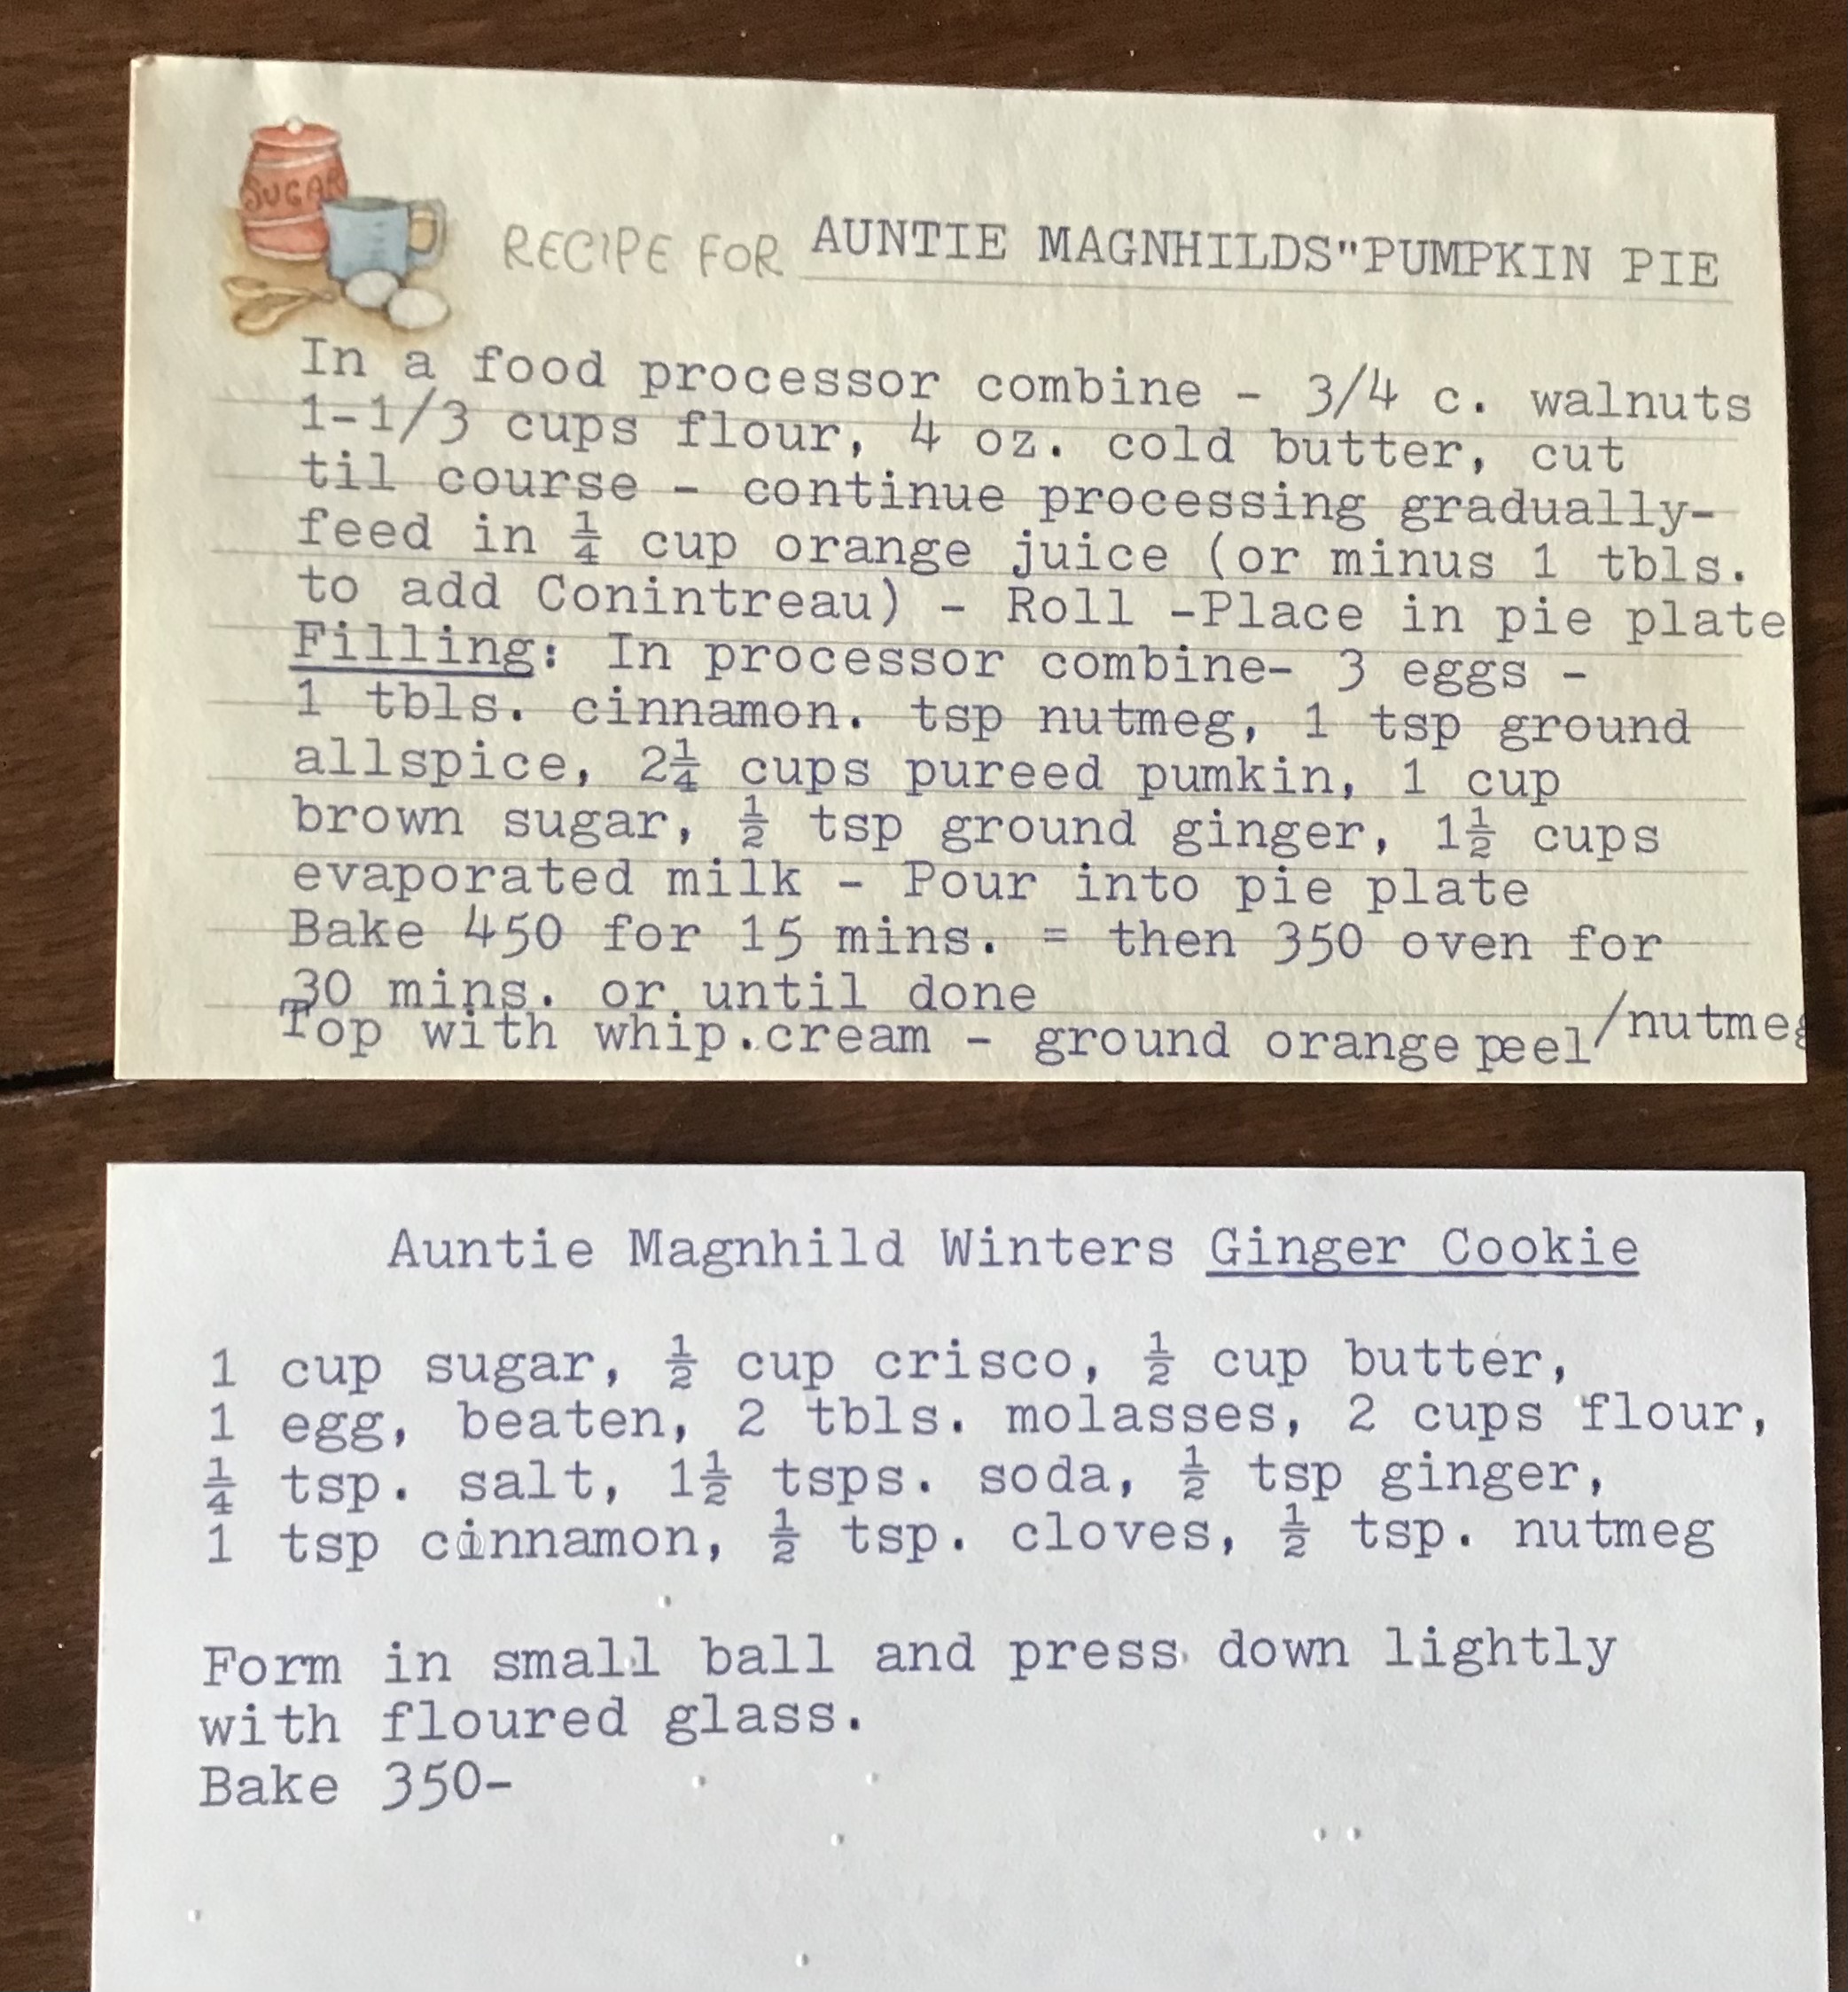 SUGAR
RECIPE FOR AUNTIE MAGNHILDS"PUMPKIN PIE
In a food processor combine - 3/4 c. walnuts
1-1/3 cups flour, 4 oz. cold butter, cut
til course - continue processing gradually-
feed in ¼ cup orange juice (or minus 1 tbls.
to add Conintreau) - Roll -Place in pie plate
Filling: In processor combine- 3 eggs -
1 tbls. cinnamon. tsp nutmeg, 1 tsp ground
allspice, 2¼ cups pureed pumkin, 1 cup
brown sugar, ½ tsp ground ginger, 1½ cups
evaporated milk - Pour into pie plate
Bake 450 for 15 mins. = then 350 oven for
30 mins. or until done
Top with whip.cream - ground orange peel/nutmeg
Auntie Magnhild Winters Ginger Cookie
1 cup sugar, ½ cup crisco, ½ cup butter,
1 egg, beaten, 2 tbls. molasses, 2 cups flour,
¼ tsp. salt, 1½ tsps. soda, ½ tsp ginger,
1 tsp cinnamon, ½ tsp. cloves, ½ tsp. nutmeg
Form in small ball and press down lightly
with floured glass.
Bake 350-